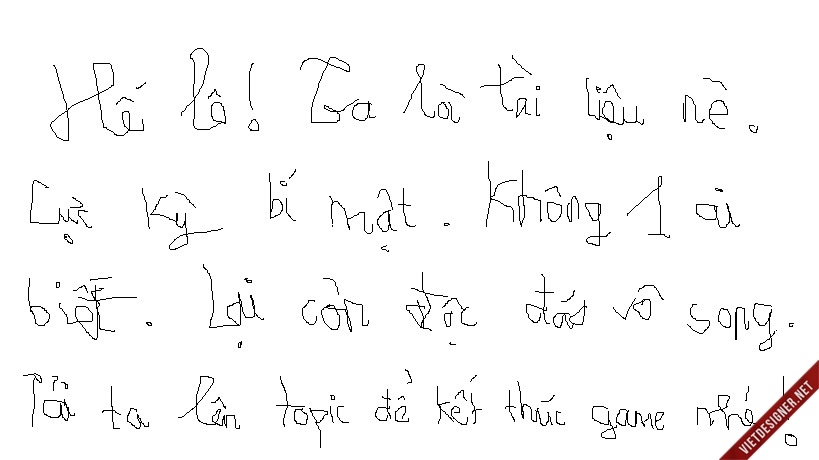 Hế lô! Ta là tài liệu nè.
Cực kỳ bí mật. Không 1 ai
biết. Lại còn độc đáo vô song.
Tải ta lên topic để kết thúc game nhé!
VIETDESIGNER.NET